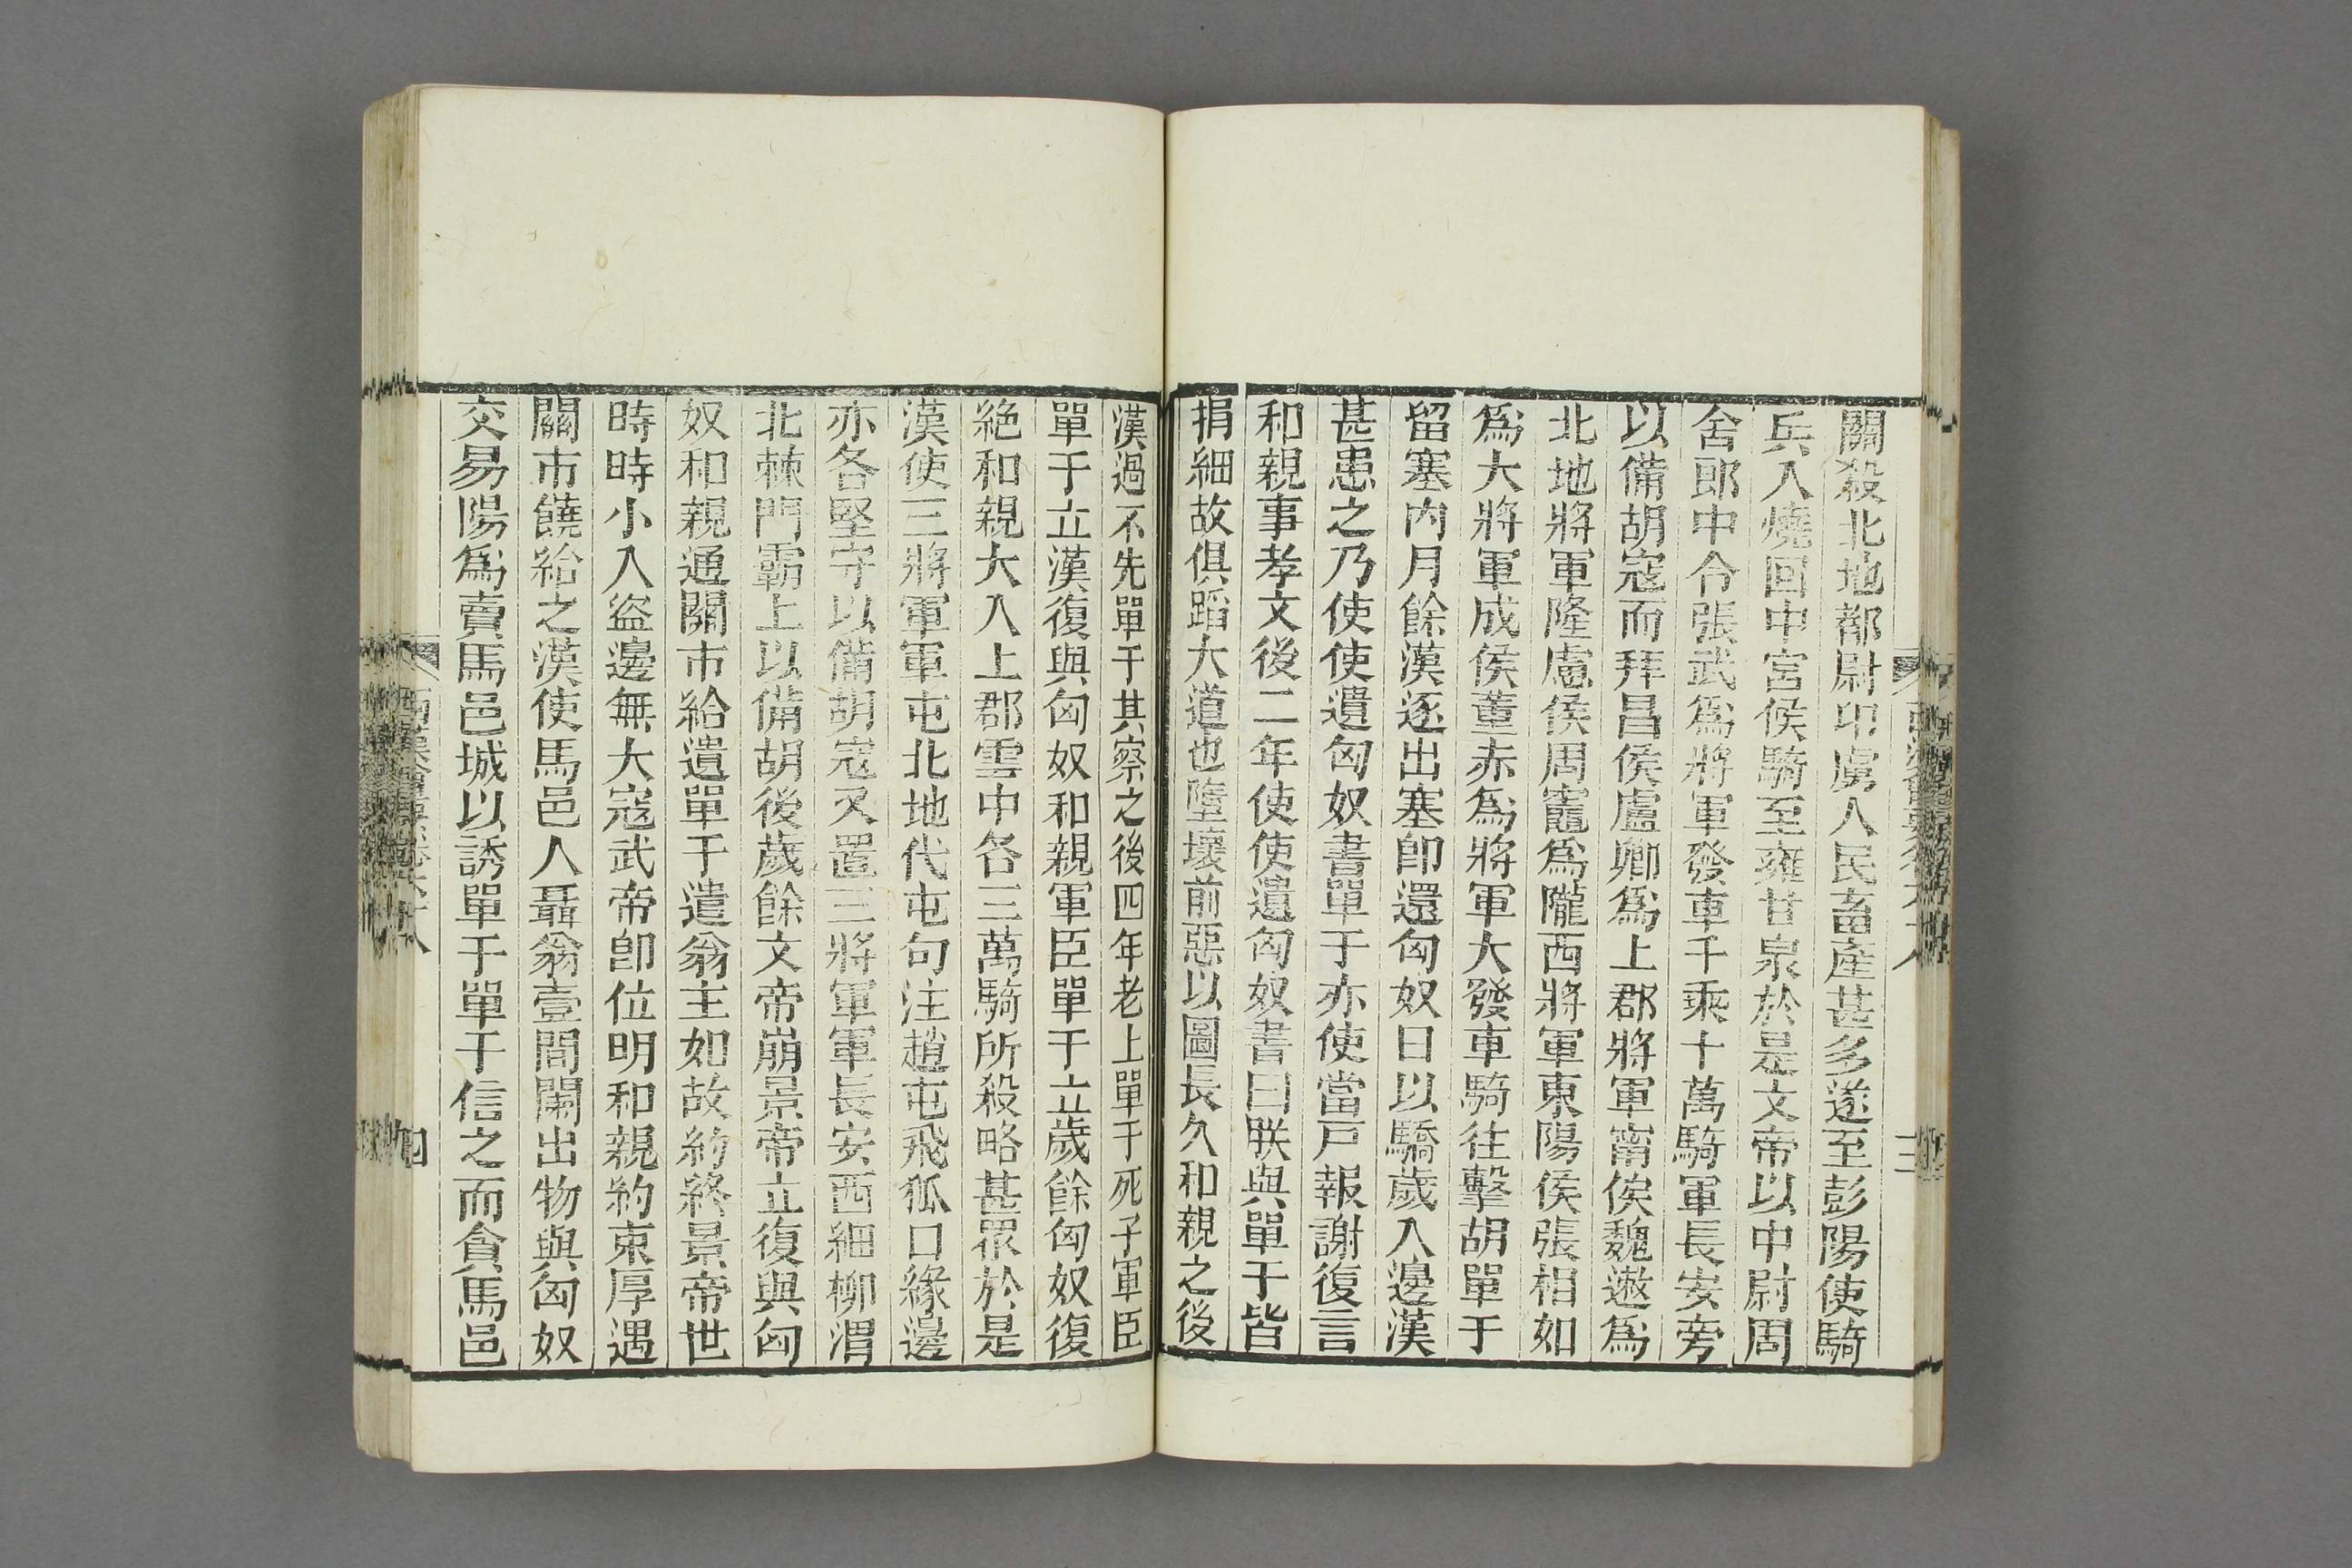 關殺北地都尉卬虜人民畜產甚多遂至彭陽使騎
兵入燒回中宮候騎至雍甘泉於是文帝以中尉周
舍郎中令張武爲將軍發車千乘十萬騎軍長安旁
以備胡寇而拜昌侯盧卿爲上郡將軍甯侯魏遬爲
北地將軍隆慮侯周竈爲隴西將軍東陽侯張相如
爲大將軍成侯董赤爲將軍大發車騎往擊胡單于
留塞內月餘漢逐出塞卽還匈奴日以驕歲入邊漢
甚患之乃使使遺匈奴書單于亦使當戶報謝復言
和親事孝文後二年使使遺匈奴書曰朕與單于皆
捐細故俱蹈大道也墮壞前惡以圖長久和親之後
漢過不先單于其察之後四年老上單于死子軍臣
單于立漢復與匈奴和親軍臣單于立歲餘匈奴復
絕和親大入上郡雲中各三萬騎所殺略甚眾於是
漢使三將軍軍屯北地代屯句注趙屯飛狐口緣邊
亦各堅守以備胡寇又置三將軍軍長安西細柳渭
北棘門霸上以備胡後歲餘文帝崩景帝立復與匈
奴和親通關市給遺單于遣翁主如故約終景帝世
時時小入盜邊無大寇武帝卽位明和親約束厚遇
關市饒給之漢使馬邑人聶翁壹間闌出物與匈奴
交易陽爲賣馬邑城以誘單于單于信之而貪馬邑
四